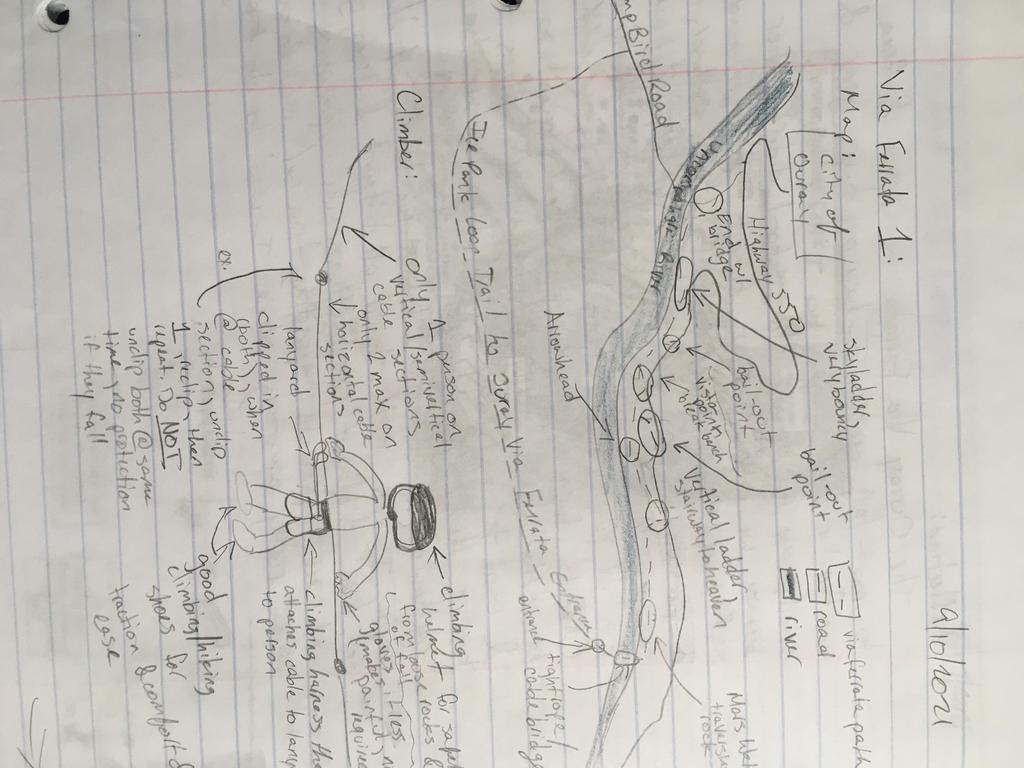 9/10/2021
Via Ferrata 1:
Map:
City of
Ouray
skyladder
very bouncy
bail-out
point
via ferrata path
road
river
Highway 550
bail-out
point
End w/
bridge
vision in
bleak
Vertical ladder/
stairway to heaven
Mars
traverse
rock
Bird Road
River
Arrowhead
Entrance
entrance tightrope/
cable bridge
Ice Park Loop Trail to Ouray Via Ferrata
Climber:
only 1 person on
vertical/semivertical
cable sections
only 2 max on
horizontal cable
sections
lanyard
clipped in
(both); when
@ cable
ex.
section; unclip
1 reclip, then
repeat. Do NOT
unclip both @ same
time; no protection
if they fall
climbing
helmet for
from loose rocks &
fall
gloves
climbing harness
attaches cable to
to person
good
climbing/hiking
shoes for
traction & comfort &
ease